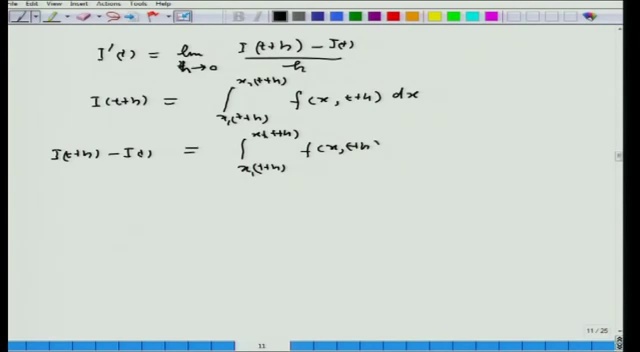 File Edit View Insert Actions Tools Help
I'(t) = lim h→0 I(t+h) - I(t) / h
I(t+h) = ∫ x₁(t+h) x₂(t+h) f(x, t+h) dx
I(t+h) - I(t) = ∫ x₁(t+h) x₂(t+h) f(x, t+h)
11 / 25
11